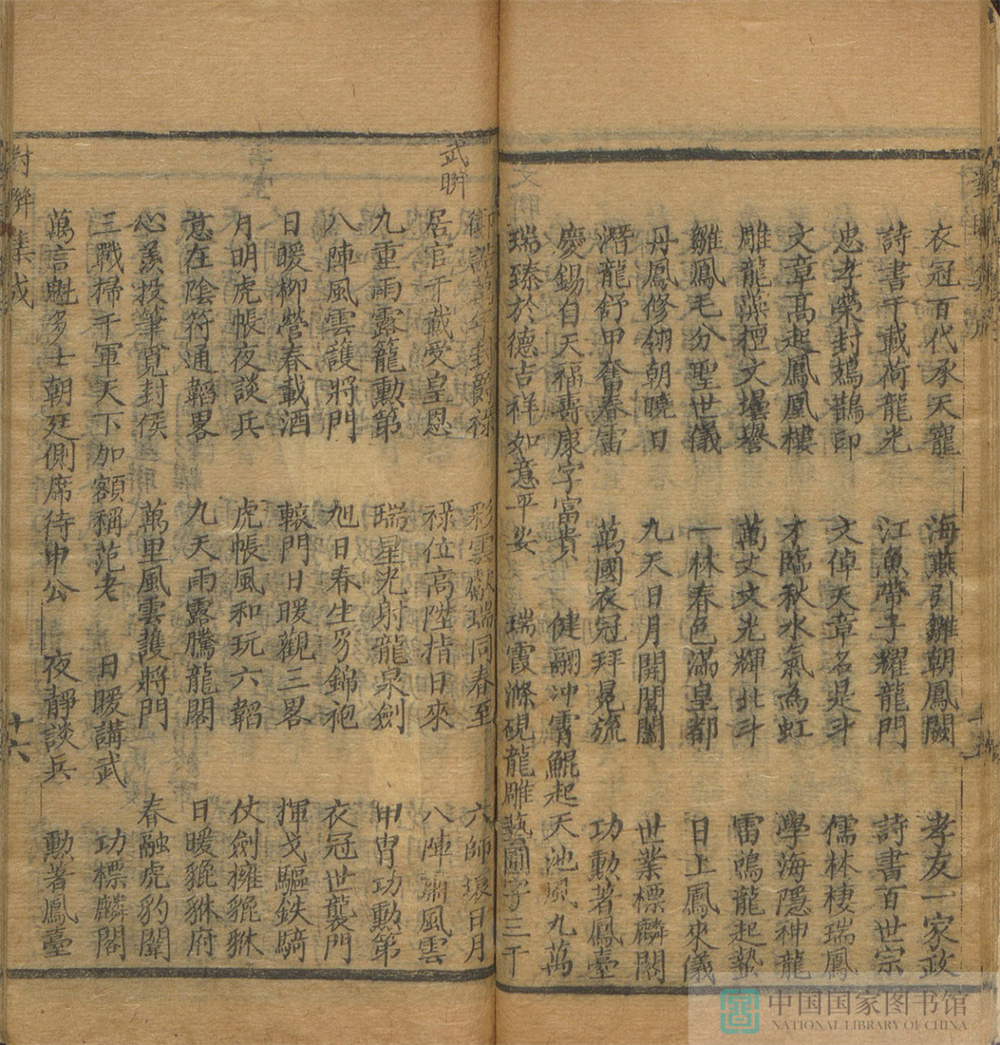 衣冠百代承天寵　海燕引雛朝鳳闕　孝友一家政
詩書千載荷龍光　江魚帶子耀龍門　詩書百世宗
忠孝榮封鵲印　文倬天章名是斗　儒林棲瑞鳳
文章高起鳳凰樓　才臨秋水氣為虹　學海隱神龍
雕龍藻檀文壇譽　萬丈文光輝北斗　雷鳴龍起蟄
雛鳳毛分聖世儀　一林春色滿皇都　日上鳳來儀
丹鳳修翎朝曉日　九天日月開閶闔　世業標麟閣
潛龍舒甲奮春雷　萬國衣冠拜冕旒　功勳著鳳臺
慶錫自天福壽康字富貴　健翮冲霄鯤起天池風九萬
瑞臻於德吉祥如意平安　瑞霞滌硯龍雕藝圃字三千
武聨
年封爵祿　彩雲獻瑞同春至　六師環日月
居官千載受皇恩　祿位高陞指日來　八陣肅風雲
九重雨露籠勳第　瑞星光射龍泉劍　甲冑功勳第
八陣風雲護將門　旭日春生錦袍　衣冠世襲門
日暖柳營春載酒　轅門日暖觀三畧　揮戈驅鉄騎
月明虎帳夜談兵　虎帳風和玩六韜　仗劍擁貔貅
意在陰符通韜畧　九天雨露騰龍閣　日暖貔貅府
心羨投筆覓封侯　萬里風雲護將門　春融虎豹闈
三戰掃千軍天下加額稱范老　日暖講武　功標麟閣
萬言魁多士朝廷側席待申公　夜靜談兵　勲著鳳臺
對聨集成
十六
中国国家图书馆
NATIONAL LIBRARY OF CHINA